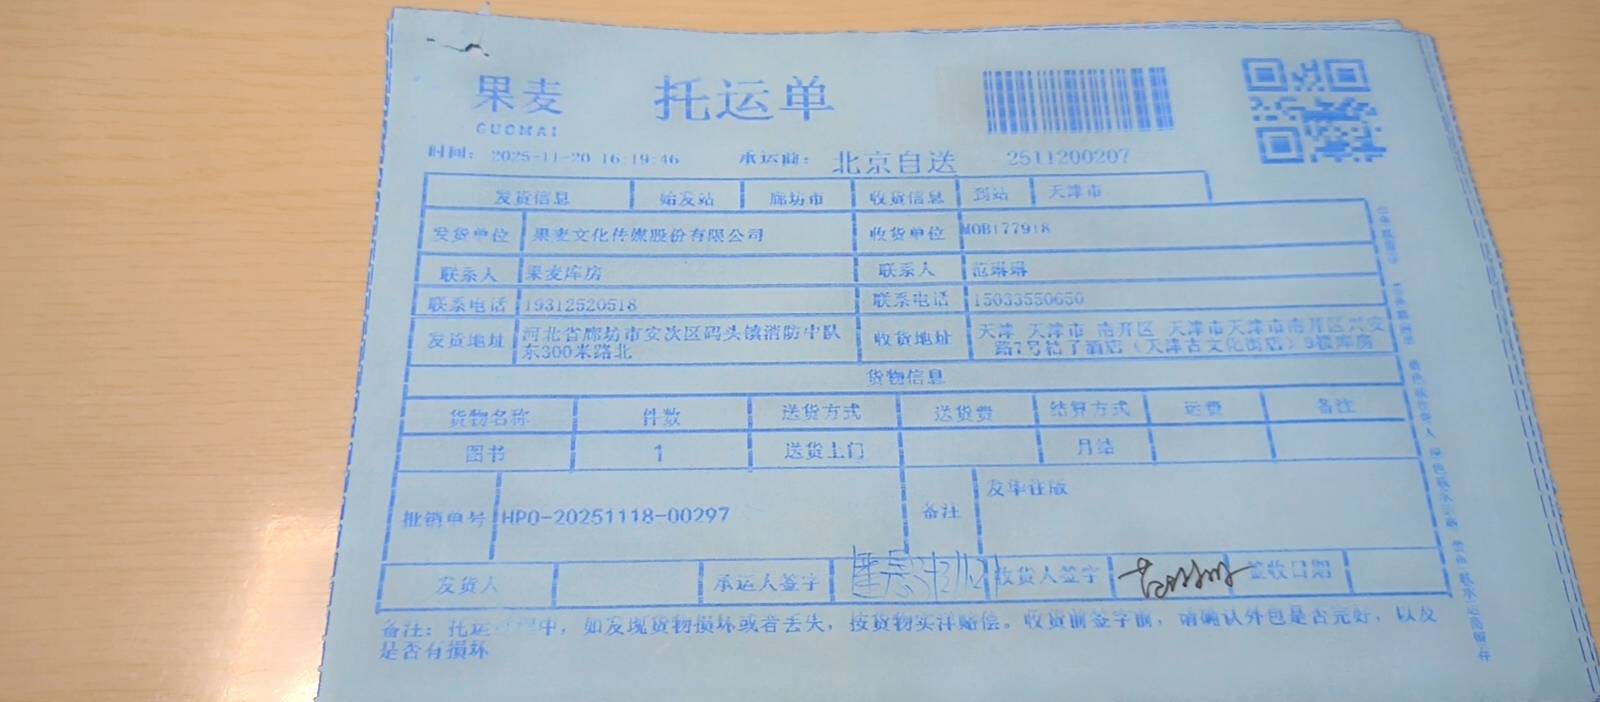 果麦
GUOMAI
托运单
时间: 2025-11-20 16:19:46 承运商: 北京自送 2511200207
发货信息 始发站 廊坊市 收货信息 到站 天津市
发货单位 果麦文化传媒股份有限公司 收货单位 MOB177918
联系人 果麦库房 联系人 范琳琳
联系电话 19312520518 联系电话 15033550650
发货地址 河北省廊坊市安次区码头镇消防中队 收货地址 天津 天津市 南开区 天津市天津市南开区兴安
东300米路北 路7号桔子酒店(天津古文化街店)9楼库房
货物信息
货物名称 件数 送货方式 送货费 结算方式 运费 备注
图书 1 送货上门 月结
批销单号 HPO-20251118-00297 备注 发华往版
发货人 承运人签字 收货人签字 签收日期
备注: 托运过程中, 如发现货物损坏或者丢失, 按货物实洋赔偿。收货前签字前, 请确认外包是否完好, 以及
是否有损坏